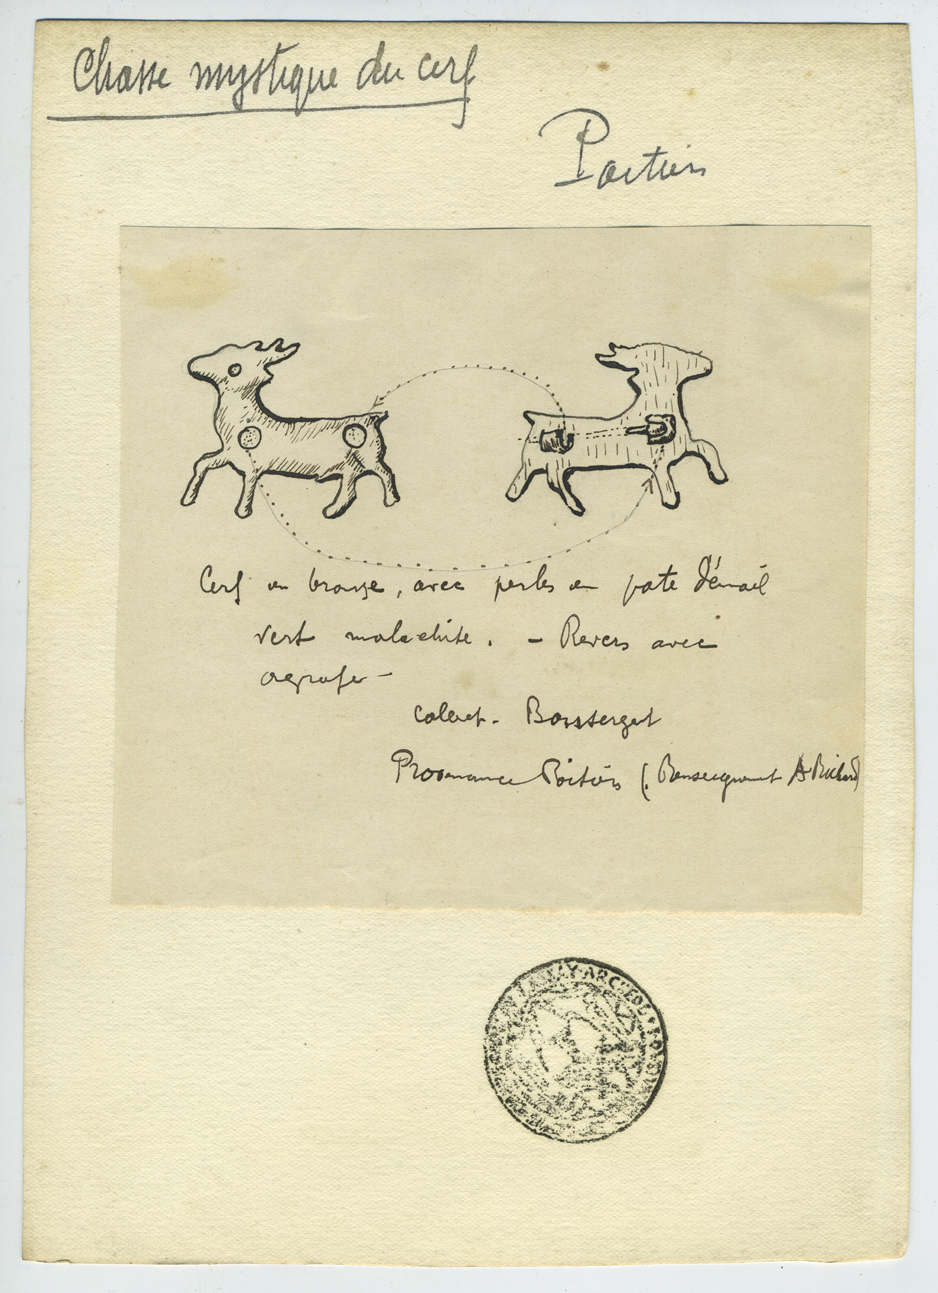 Chasse mystique du cerf
Poitiers
Cerf en bronze, avec perles en pate d'émail
vert malachite. - Revers avec
agrafe -
collect. Bonsergent
Provenance Poitiers (Renseignement A Richard)
ARCHEOL